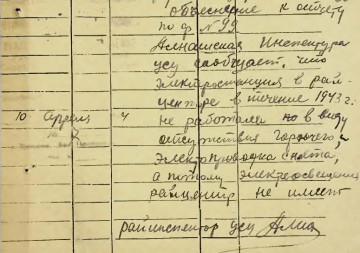 Объяснение к отчету
по ф. № 99
Алнашская Инспектура
усу сообщает, что
электростанция в рай
центре в течение 1943 г.
10 апреля 4 не работала но в виду
отсутствия горючего,
электропроводка снята,
а потому электроосвещения
райцентр не имеет
райинспектор усу